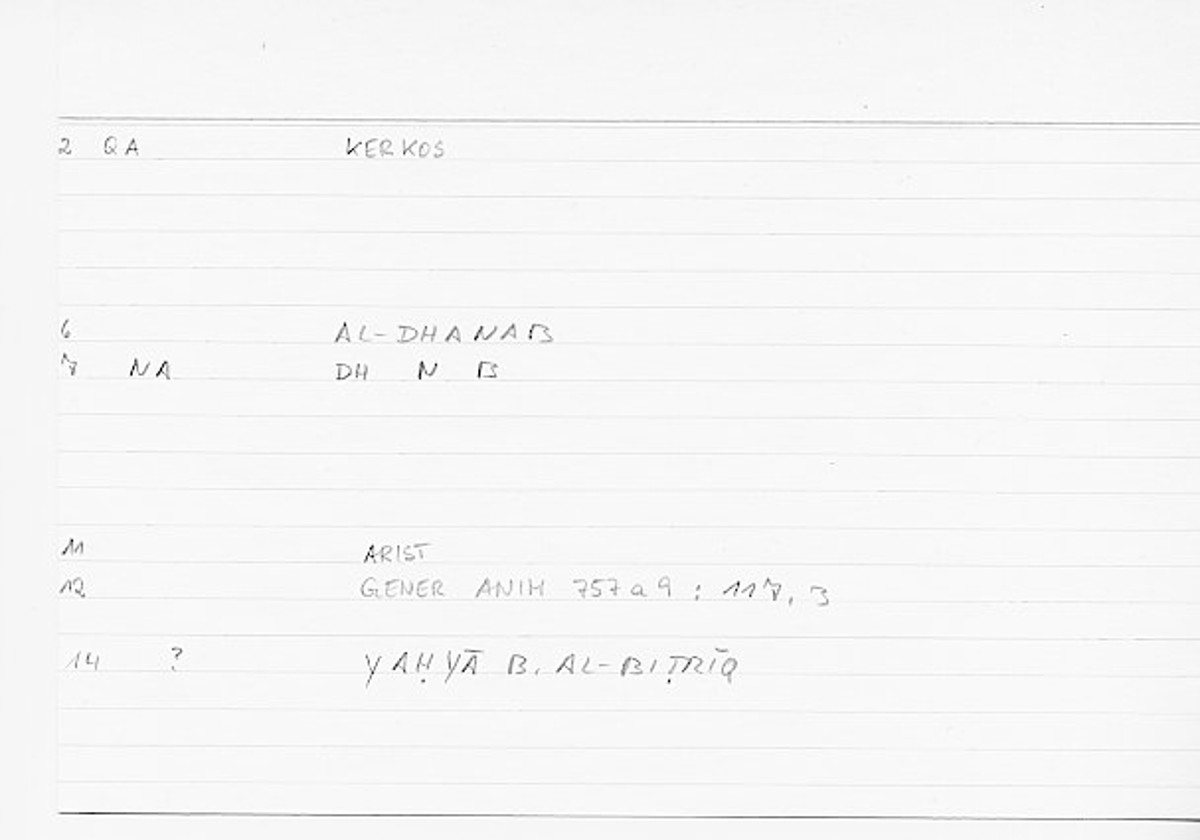 2 QA KERKOS
6 AL-DHANAB
7 NA DH N B
11 ARIST
12 GENER ANIM 757a9 : 117, 3
14 ? YAḤYĀ B. AL-BIṬRĪQ